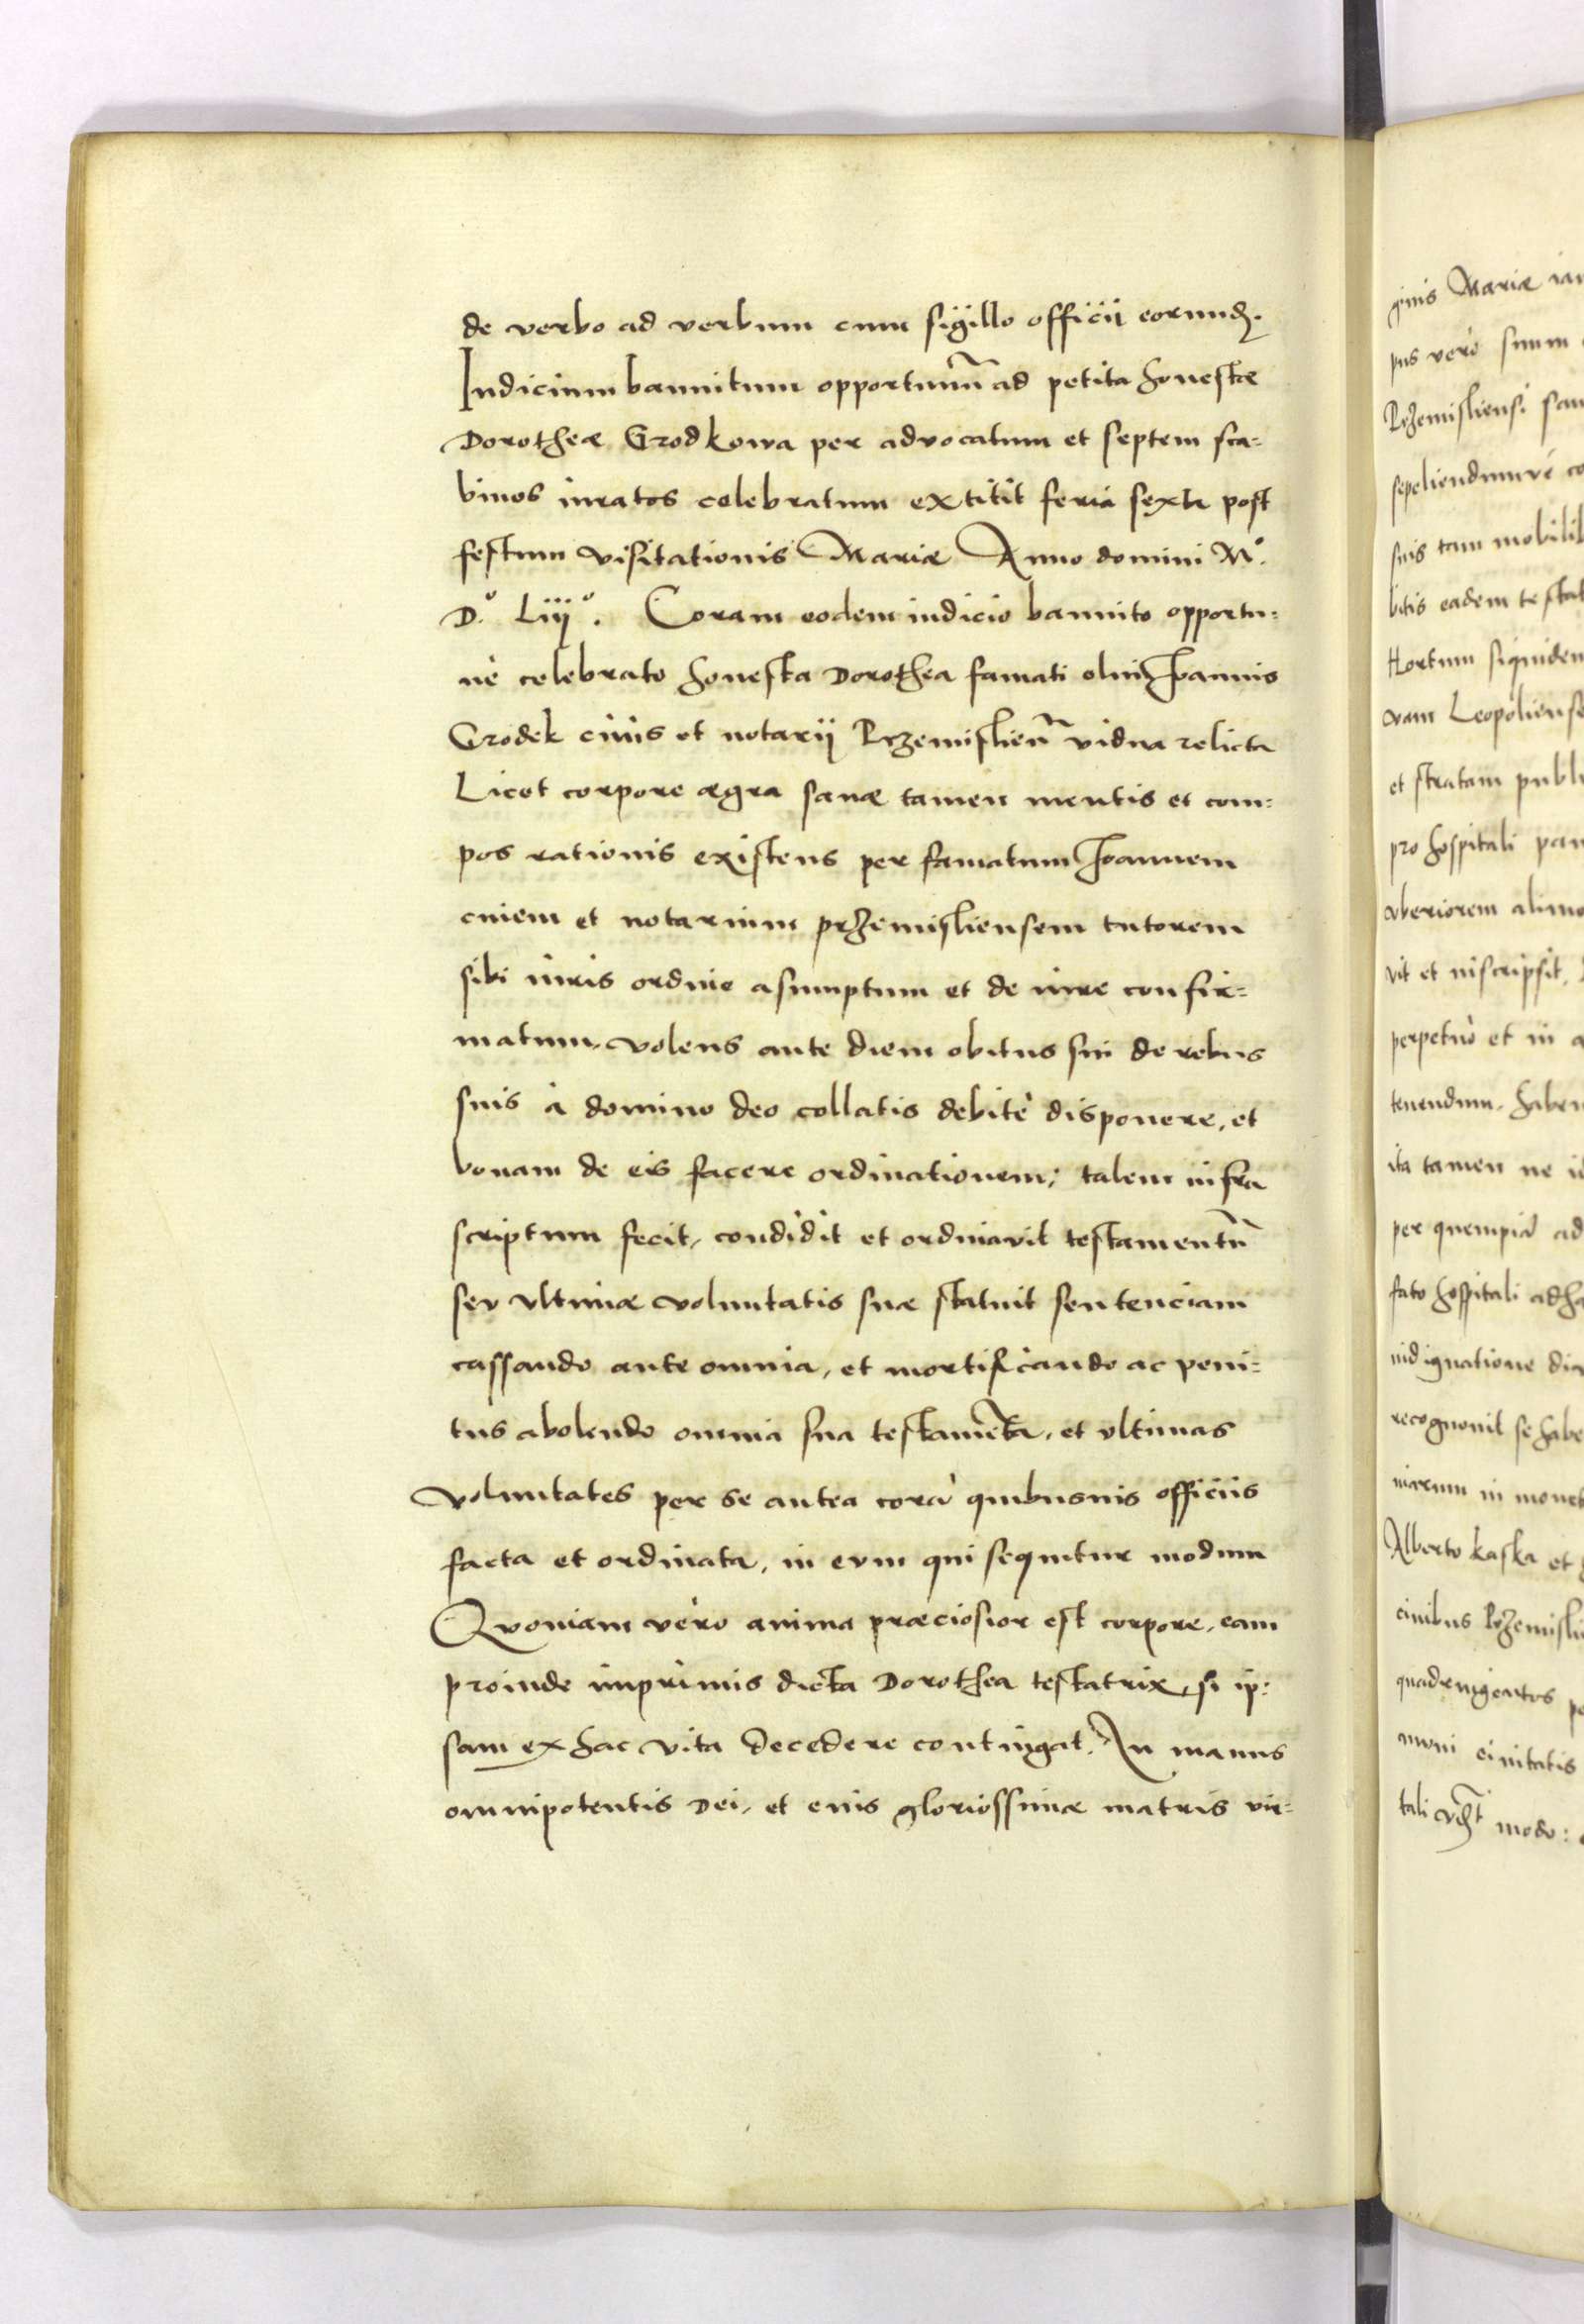 de verbo ad verbum cum sigillo officii eorund.
Iudicium bannitum opportunũ ad petita honestæ
Dorotheæ Grodkowa per advocatum et septem sca=
binos iuratos celebratum extitit feria sexta post
festum visitationis Mariæ Anno domini M°.
D.° Liij°. Coram eodem iudicio bannito opportu=
nè celebrato honesta Dorothea famati olim Joannis
Grodek ciuis et notarij Przemislien̄ vidua relicta
Licet corpore ægra sanæ tamen mentis et com=
pos rationis existens per famatum Joannem
ciuem et notarium przemisliensem tutorem
sibi iuris ordine asumptum et de iure confir=
matum, volens ante diem obitus sui de rebus
suis à domino deo collatis debitè disponere, et
bonam de eis facere ordinationem; talem infra
scriptum fecit, condidit et ordinavit testamentũ
sev vltimæ voluntatis suæ statuit sentenciam
cassando ante omnia, et mortificando ac peni=
tus abolendo omnia sua testamẽta, et vltimas
voluntates per se antea corã quibusuis officiis
facta et ordinata, in evm qui sequitur modum
Qvoniam vero anima præciosior est corpore, eam
proinde imprimis dicta Dorothea testatrix, si ip=
sam ex hac vita decedere contingat, In manus
omnipotentis Dei, et eius gloriossimæ matris vir=
ginis Mariæ
pus verò suum
Przemisliensi
sepeliendumvé
suis tam
bitis eadem
Hortum siquidem
et stratam
pro hospitali
vberiorem
vit et inscripsit,
perpetuò et in
tenendum,
ita tamen ne
per quempiã ad
fato hospitali
indignatione
recognouit se
in
Alberto kaska et
ciuibus
quadringentos
ciuitatis
tali modo: